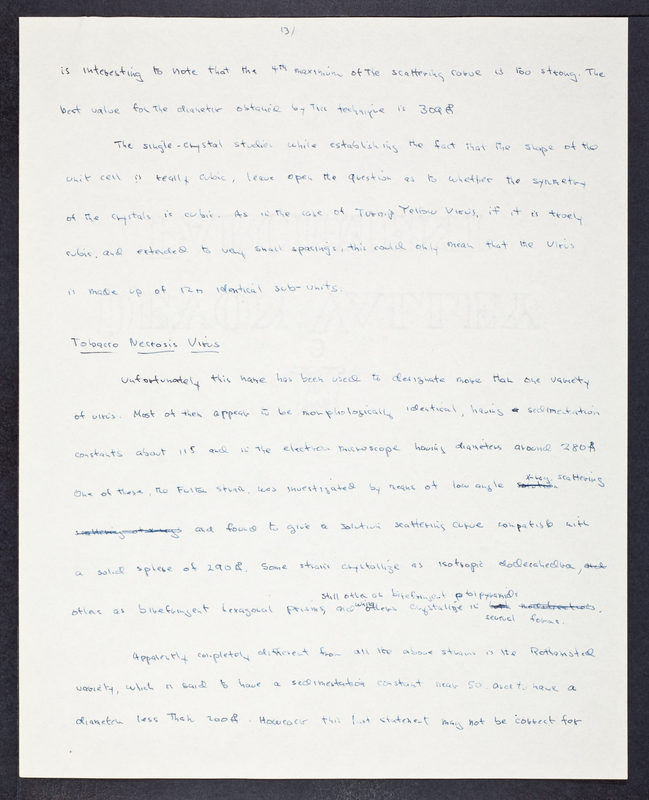 13/
is interesting to note that the 4th maximum of the scattering curve is too strong. The
best value for the diameter obtained by this technique is 309Å
The single-crystal studies while establishing the fact that the shape of the
unit cell is really cubic, leave open the question as to whether the symmetry
of the crystals is cubic. As in the case of Turnip Yellow Virus, if it is truely
cubic, and extended to very small spacings, this could only mean that the virus
is made up of 12n identical sub-units.
Tobacco Necrosis Virus
Unfortunately this name has been used to designate more than one variety
of virus. Most of them appear to be morphologically identical, having sedimentation
constants about 115 and in the electron microscope having diameters around 280Å
One of these, the Fulton strain, was investigated by means of low angle solution x-ray scattering
scattering of x-rays and found to give a solution scattering curve compatible with
a solid sphere of 290Å. Some strains crystallize as isotropic dodecahedra, and
still others as birefringent bipyramids
others as birefringent hexagonal prisms, and others crystallize in
several forms.
Apparently completely different from all the above strains is the Rothamsted
variety, which is said to have a sedimentation constant near 50 and to have a
diameter less than 200Å. However this last statement may not be correct for